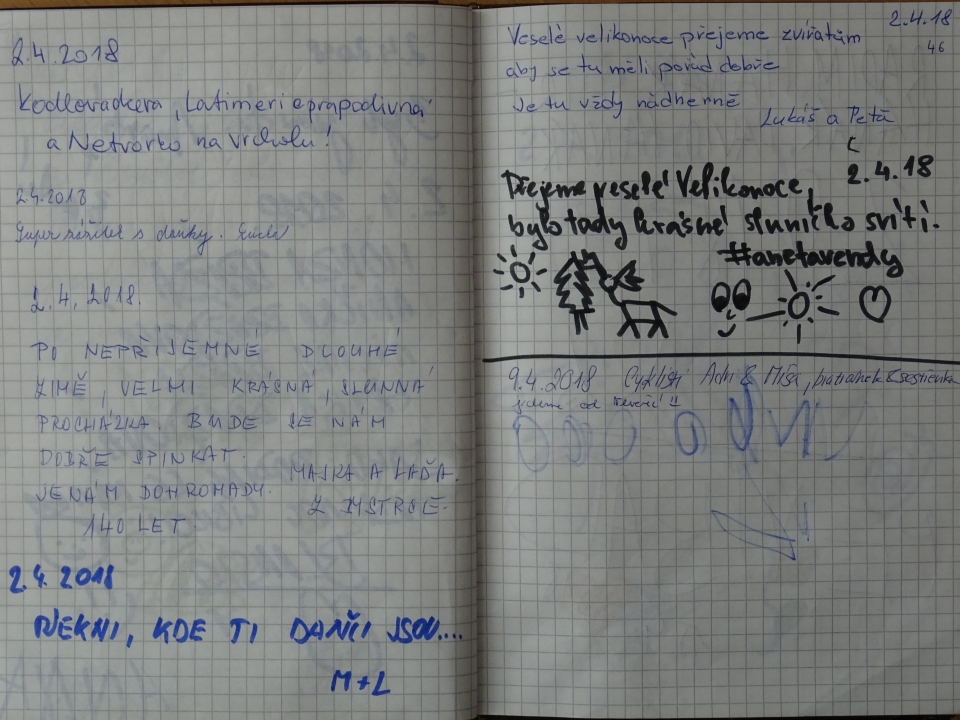 2.4.2018
a Netvorko na vrcholu!
2.4.2018
s daňky.
2.4.2018.
PO NEPŘÍJEMNĚ DLOUHÉ
ZIMĚ, VELMI KRÁSNÁ, SLUNNÁ
PROCHÁZKA. BUDE SE NÁM
DOBŘE SPINKAT.
MAJKA A LAĎA.
JE NÁM DOHROMADY
Z BYSTRCE.
140 LET
2.4.2018
ŘEKNI, KDE TI DANČI JSOU....
M+L
2.4.18
46
Veselé velikonoce přejeme zvířatům
aby se tu měli pořád dobře
Je tu vždy nádherně
Lukáš a Peťa
2.4.18
Přejeme veselé Velikonoce,
bylo tady krásné sluníčko svítí.
#anetavendy
9.4.2018 Cyklisti & Míša, bratránek & sestřenka
jedeme od !!